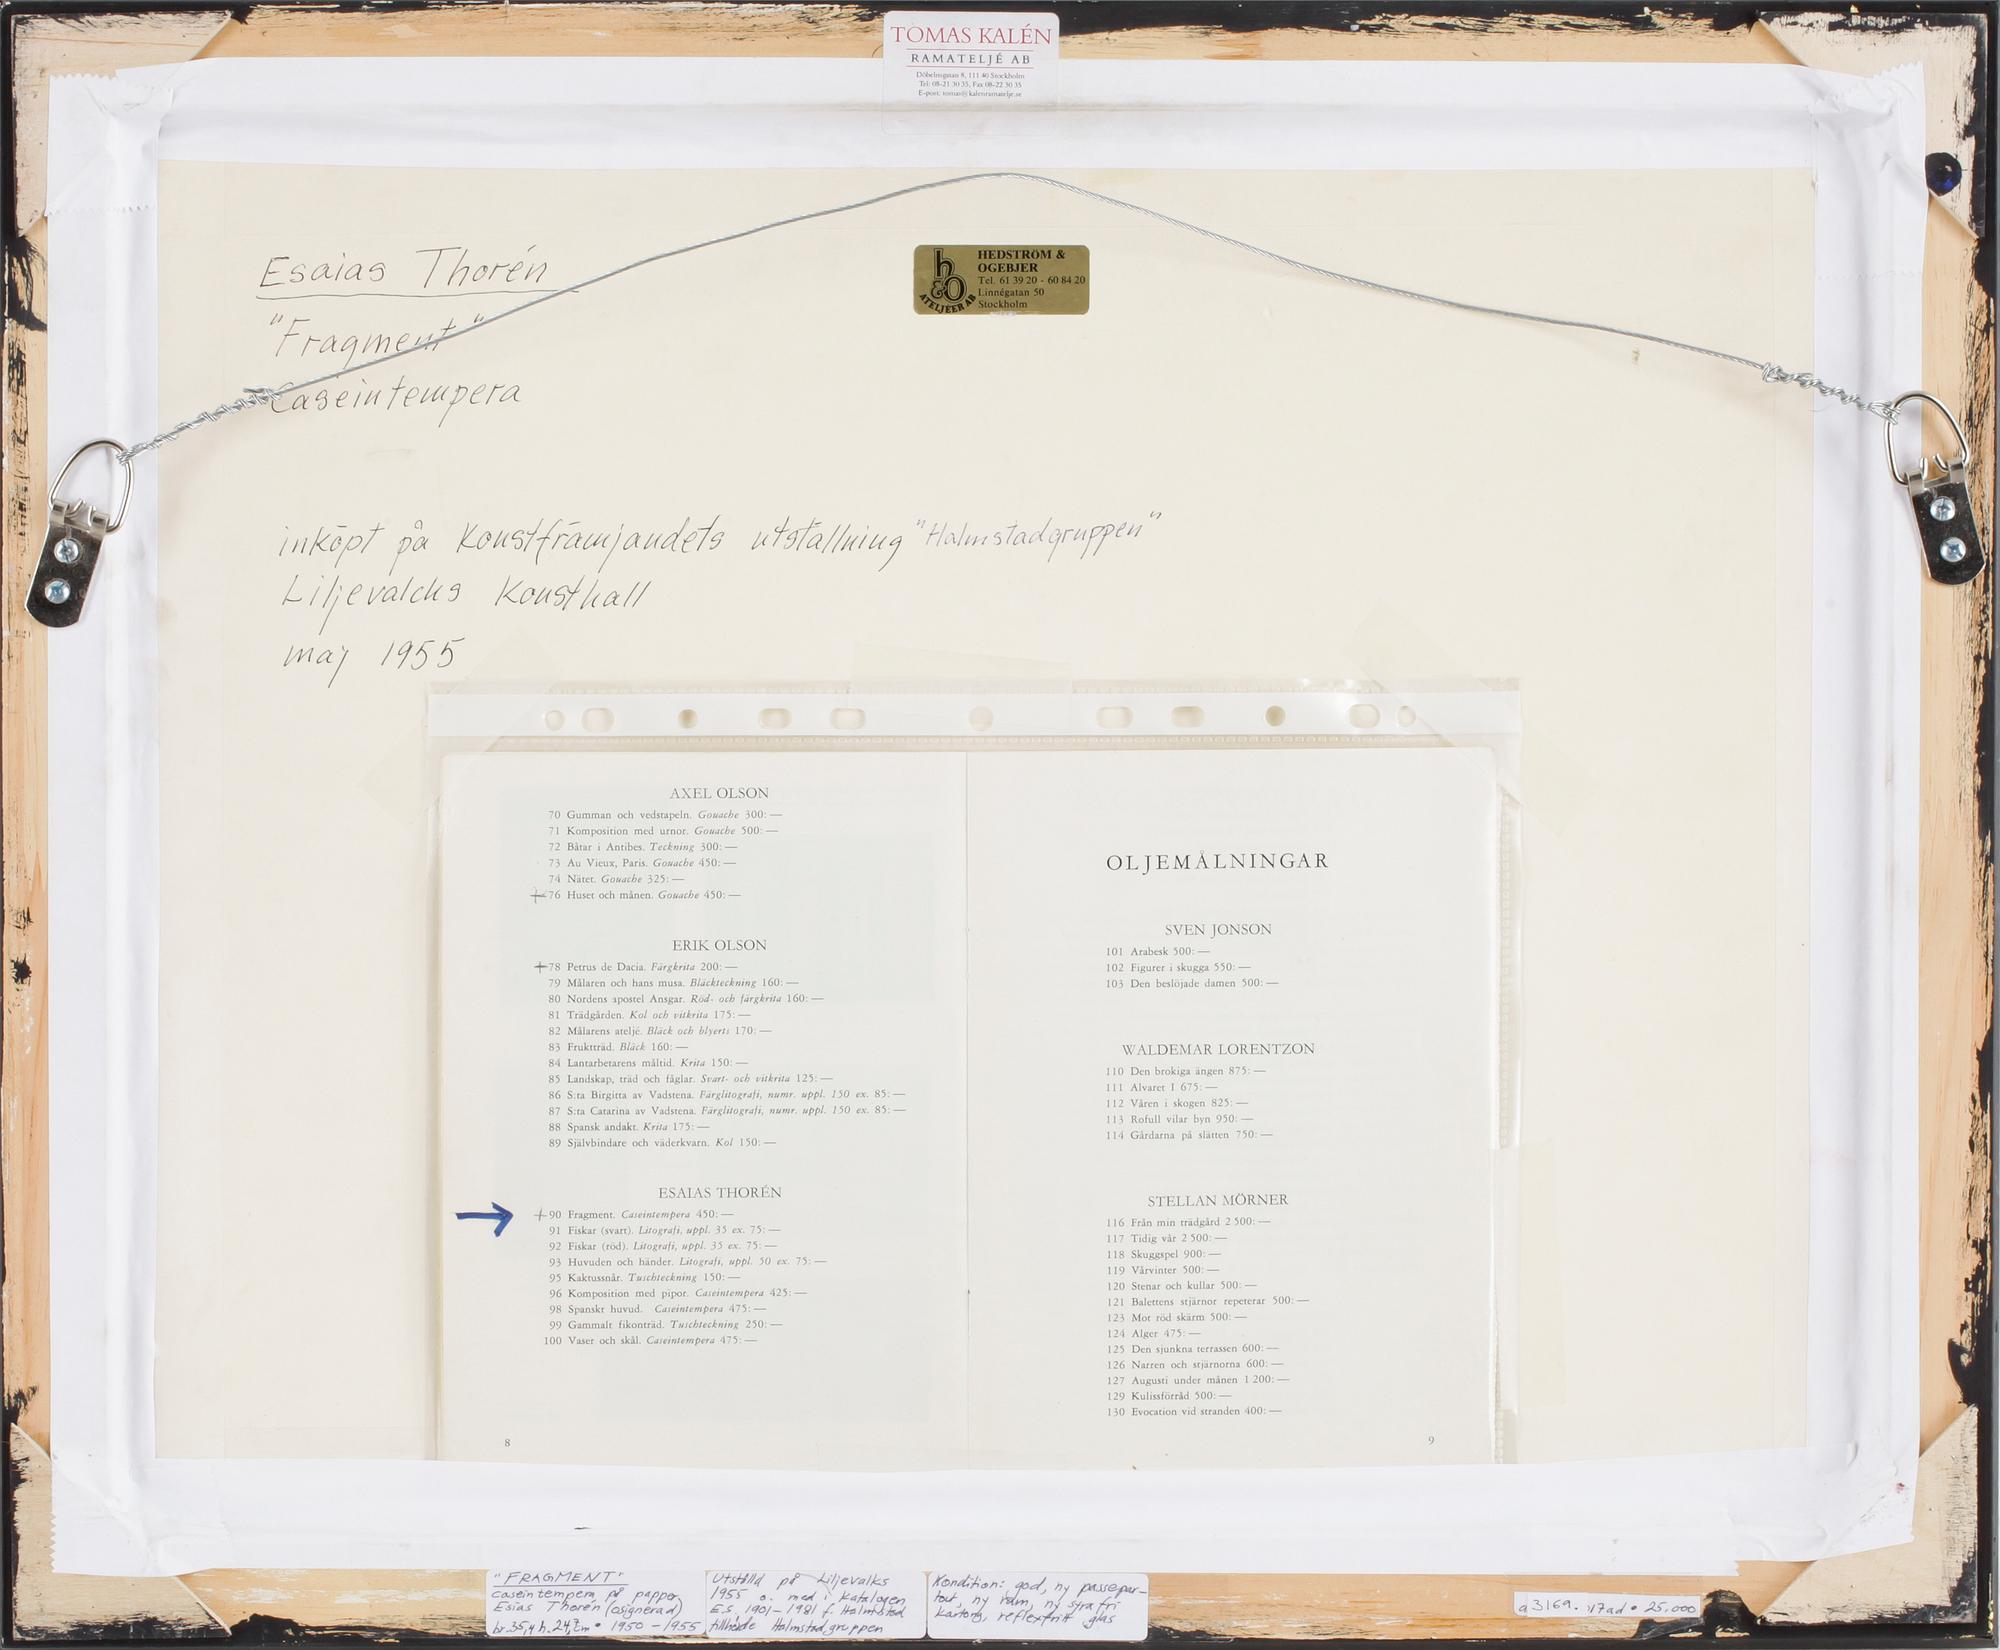 TOMAS KALÉN
RAMATELJÉ AB
Döbelnsgatan 8, 111 40 Stockholm
Tel: 08-21 30 35, Fax 08-22 30 35
E-post: tomas@kalenramatelje.se
Esaias Thorén
"Fragment"
Caseintempera
h&o
ATELJÉER AB
HEDSTRÖM &
OGEBJER
Tel. 61 39 20 - 60 84 20
Linnégatan 50
Stockholm
inköpt på Konstfrämjandets utställning "Halmstadgruppen"
Liljevalchs Konsthall
maj 1955
AXEL OLSON
70 Gumman och vedstapeln. Gouache 300:—
71 Komposition med urnor. Gouache 500:—
72 Båtar i Antibes. Teckning 300:—
73 Au Vieux, Paris. Gouache 450:—
74 Nätet. Gouache 325:—
+76 Huset och månen. Gouache 450:—
ERIK OLSON
+78 Petrus de Dacia. Färgkrita 200:—
79 Målaren och hans musa. Bläckteckning 160:—
80 Nordens apostel Ansgar. Röd- och färgkrita 160:—
81 Trädgården. Kol och vitkrita 175:—
82 Målarens ateljé. Bläck och blyerts 170:—
83 Fruktträd. Bläck 160:—
84 Lantarbetarens måltid. Krita 150:—
85 Landskap, träd och fåglar. Svart- och vitkrita 125:—
86 S:ta Birgitta av Vadstena. Färglitografi, numr. uppl. 150 ex. 85:—
87 S:ta Catarina av Vadstena. Färglitografi, numr. uppl. 150 ex. 85:—
88 Spansk andakt. Krita 175:—
89 Självbindare och väderkvarn. Kol 150:—
ESAIAS THORÉN
+90 Fragment. Caseintempera 450:—
91 Fiskar (svart). Litografi, uppl. 35 ex. 75:—
92 Fiskar (röd). Litografi, uppl. 35 ex. 75:—
93 Huvuden och händer. Litografi, uppl. 50 ex. 75:—
95 Kaktussnår. Tuschteckning 150:—
96 Komposition med pipor. Caseintempera 425:—
98 Spanskt huvud. Caseintempera 475:—
99 Gammalt fikonträd. Tuschteckning 250:—
100 Vaser och skål. Caseintempera 475:—
8
OLJEMÅLNINGAR
SVEN JONSON
101 Arabesk 500:—
102 Figurer i skugga 550:—
103 Den beslöjade damen 500:—
WALDEMAR LORENTZON
110 Den brokiga ängen 875:—
111 Alvaret I 675:—
112 Våren i skogen 825:—
113 Rofull vilar byn 950:—
114 Gårdarna på slätten 750:—
STELLAN MÖRNER
116 Från min trädgård 2 500:—
117 Tidig vår 2 500:—
118 Skuggspel 900:—
119 Vårvinter 500:—
120 Stenar och kullar 500:—
121 Balettens stjärnor repeterar 500:—
123 Mot röd skärm 500:—
124 Alger 475:—
125 Den sjunkna terrassen 600:—
126 Narren och stjärnorna 600:—
127 Augusti under månen 1 200:—
129 Kulissförråd 500:—
130 Evocation vid stranden 400:—
9
"FRAGMENT"
caseintempera på papper
Esias Thorén (osignerad)
br. 35,4 h. 24,7 cm • 1950-1955
Utställd på Liljevalks
1955 o. med i katalogen
E.S. 1901-1981 f. Halmstad
tillhörde Halmstadgruppen
Kondition: god, ny passepar-
tout, ny ram, ny syrafri
kartong, reflexfritt glas
a3169. 17ad • 25.000